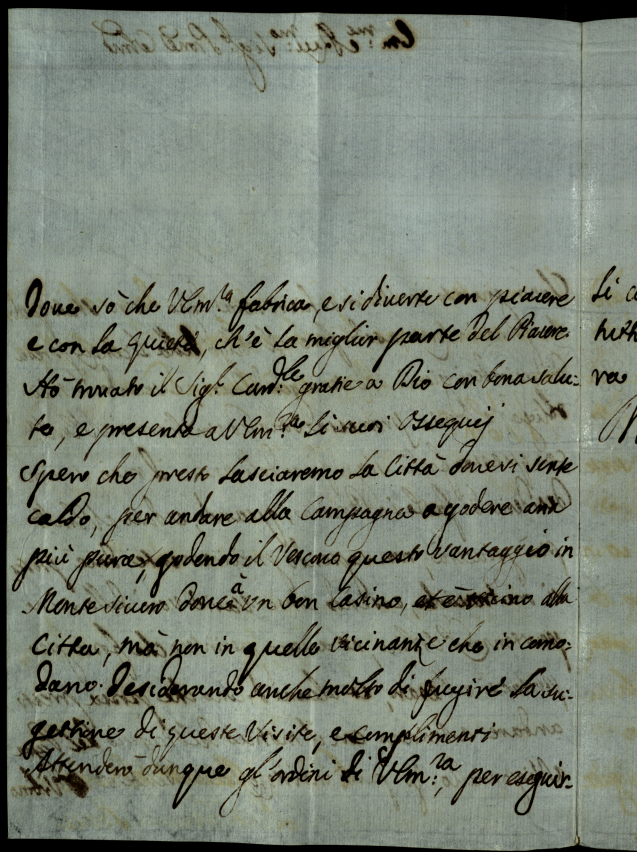 Doue sò che V Em.ᵃ fabrica, e si diuerte con piacere
e con la quiete, ch'è la miglior parte del Piacere
Hò trouato il Sig.ʳ Card.ˡᵉ gratie a Dio con bona salu-
te, e presenta a V Em.ᶻᵃ li suoi ossequij
Spero che presto lasciaremo la Città doue si sente
caldo, per andare alla Campagna a godere aria
più pura, godendo il Vescouo questo vantaggio in
Monte doue à un bon Casino, et è uicino alla
Città, mà non in quelle vicinanze che incomo-
dano. Desiderando anche molto di fugire la su-
gettione di queste Visite, e complimenti
Attenderò dunque gl'ordini di V Em.ᶻᵃ, per eseguir-
li
ua